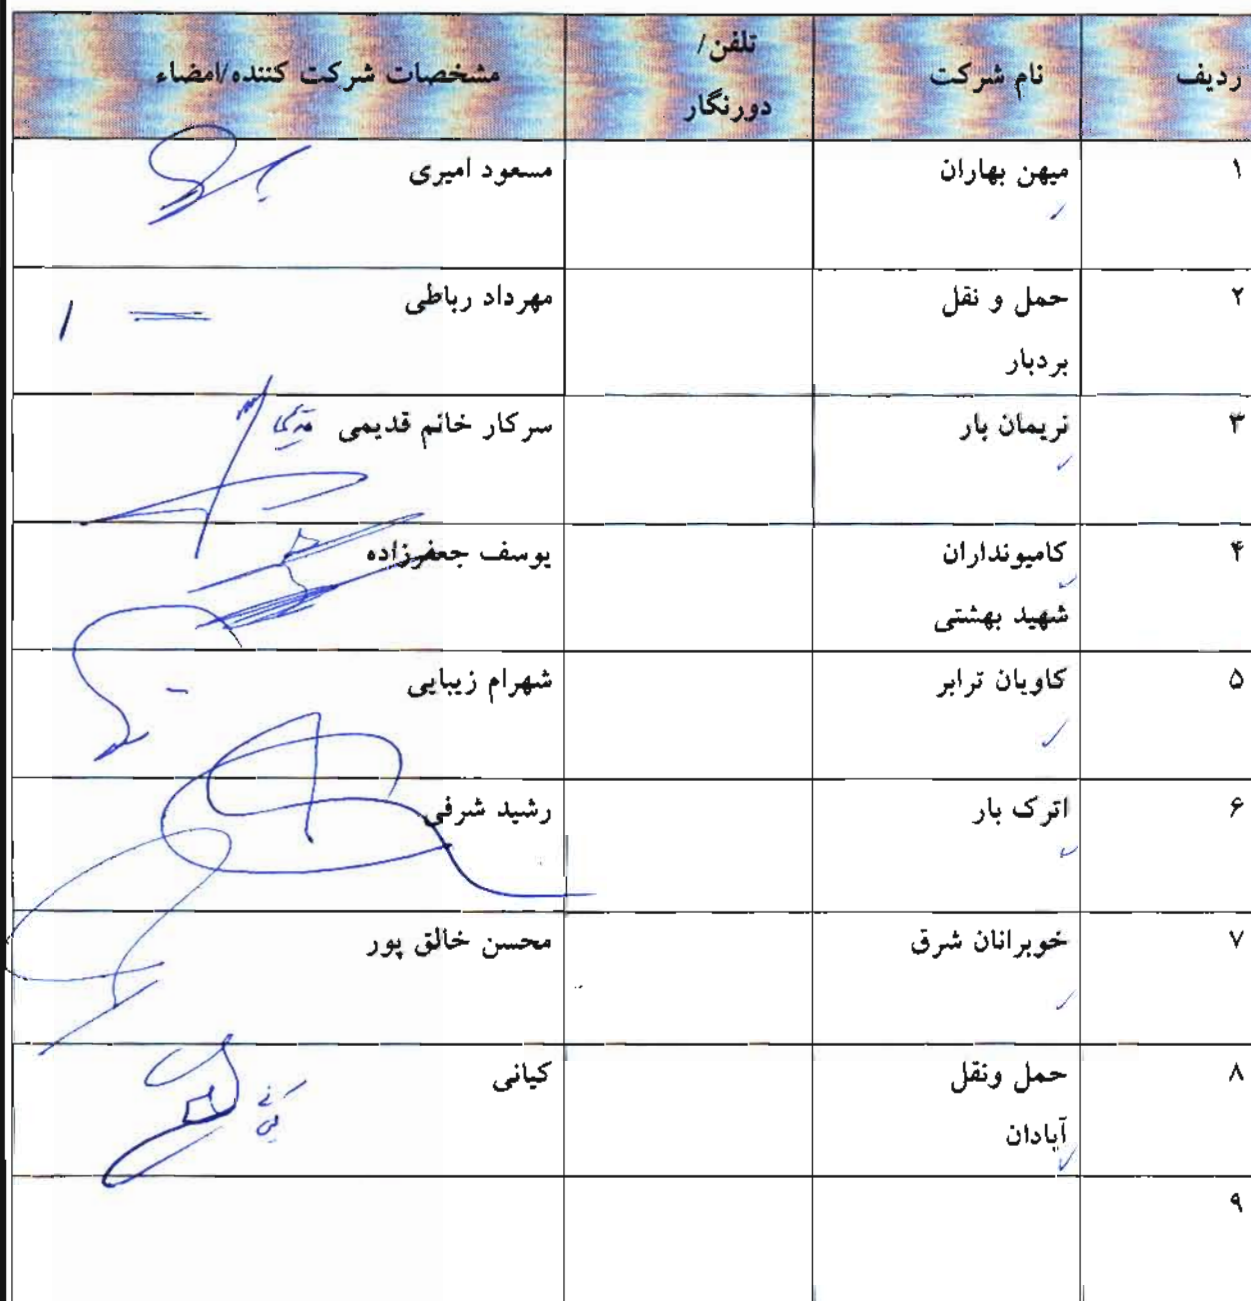 ردیف
نام شرکت
تلفن/
دورنگار
مشخصات شرکت کننده/امضاء
۱
میهن بهاران
مسعود امیری
۲
حمل و نقل
بردبار
مهرداد رباطی
۳
نریمان بار
سرکار خانم قدیمی
۴
کامیونداران
شهید بهشتی
یوسف جعفرزاده
۵
کاویان ترابر
شهرام زیبایی
۶
اترک بار
رشید شرفی
۷
خوبرانان شرق
محسن خالق پور
۸
حمل ونقل
آبادان
کیانی
۹